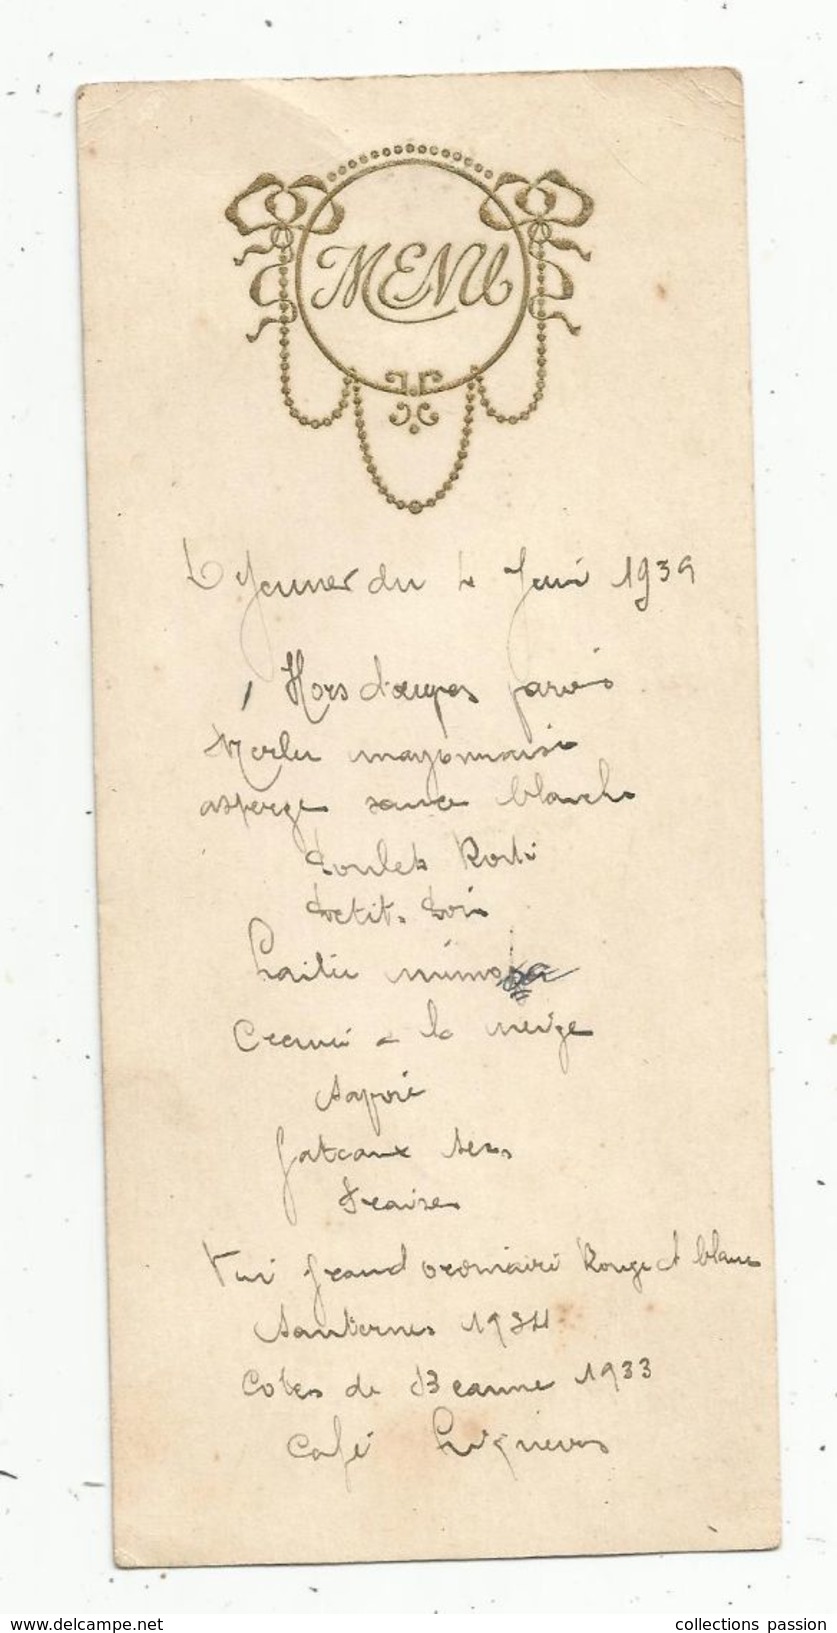 MENU
Dejeuner du 4 Juin 1939
Hors d'œuvres
Merlu mayonnaise
asperge sauce blanche
Poulets Roti
Petit-Pois
Laitue mimosa
Creme a la neige
Gateaux secs
Fraises
Vin grand ordinaire Rouge et blanc
Sauternes 1934
Cotes de Beaune 1933
Café Liqueurs
www.delcampe.net
collections passion